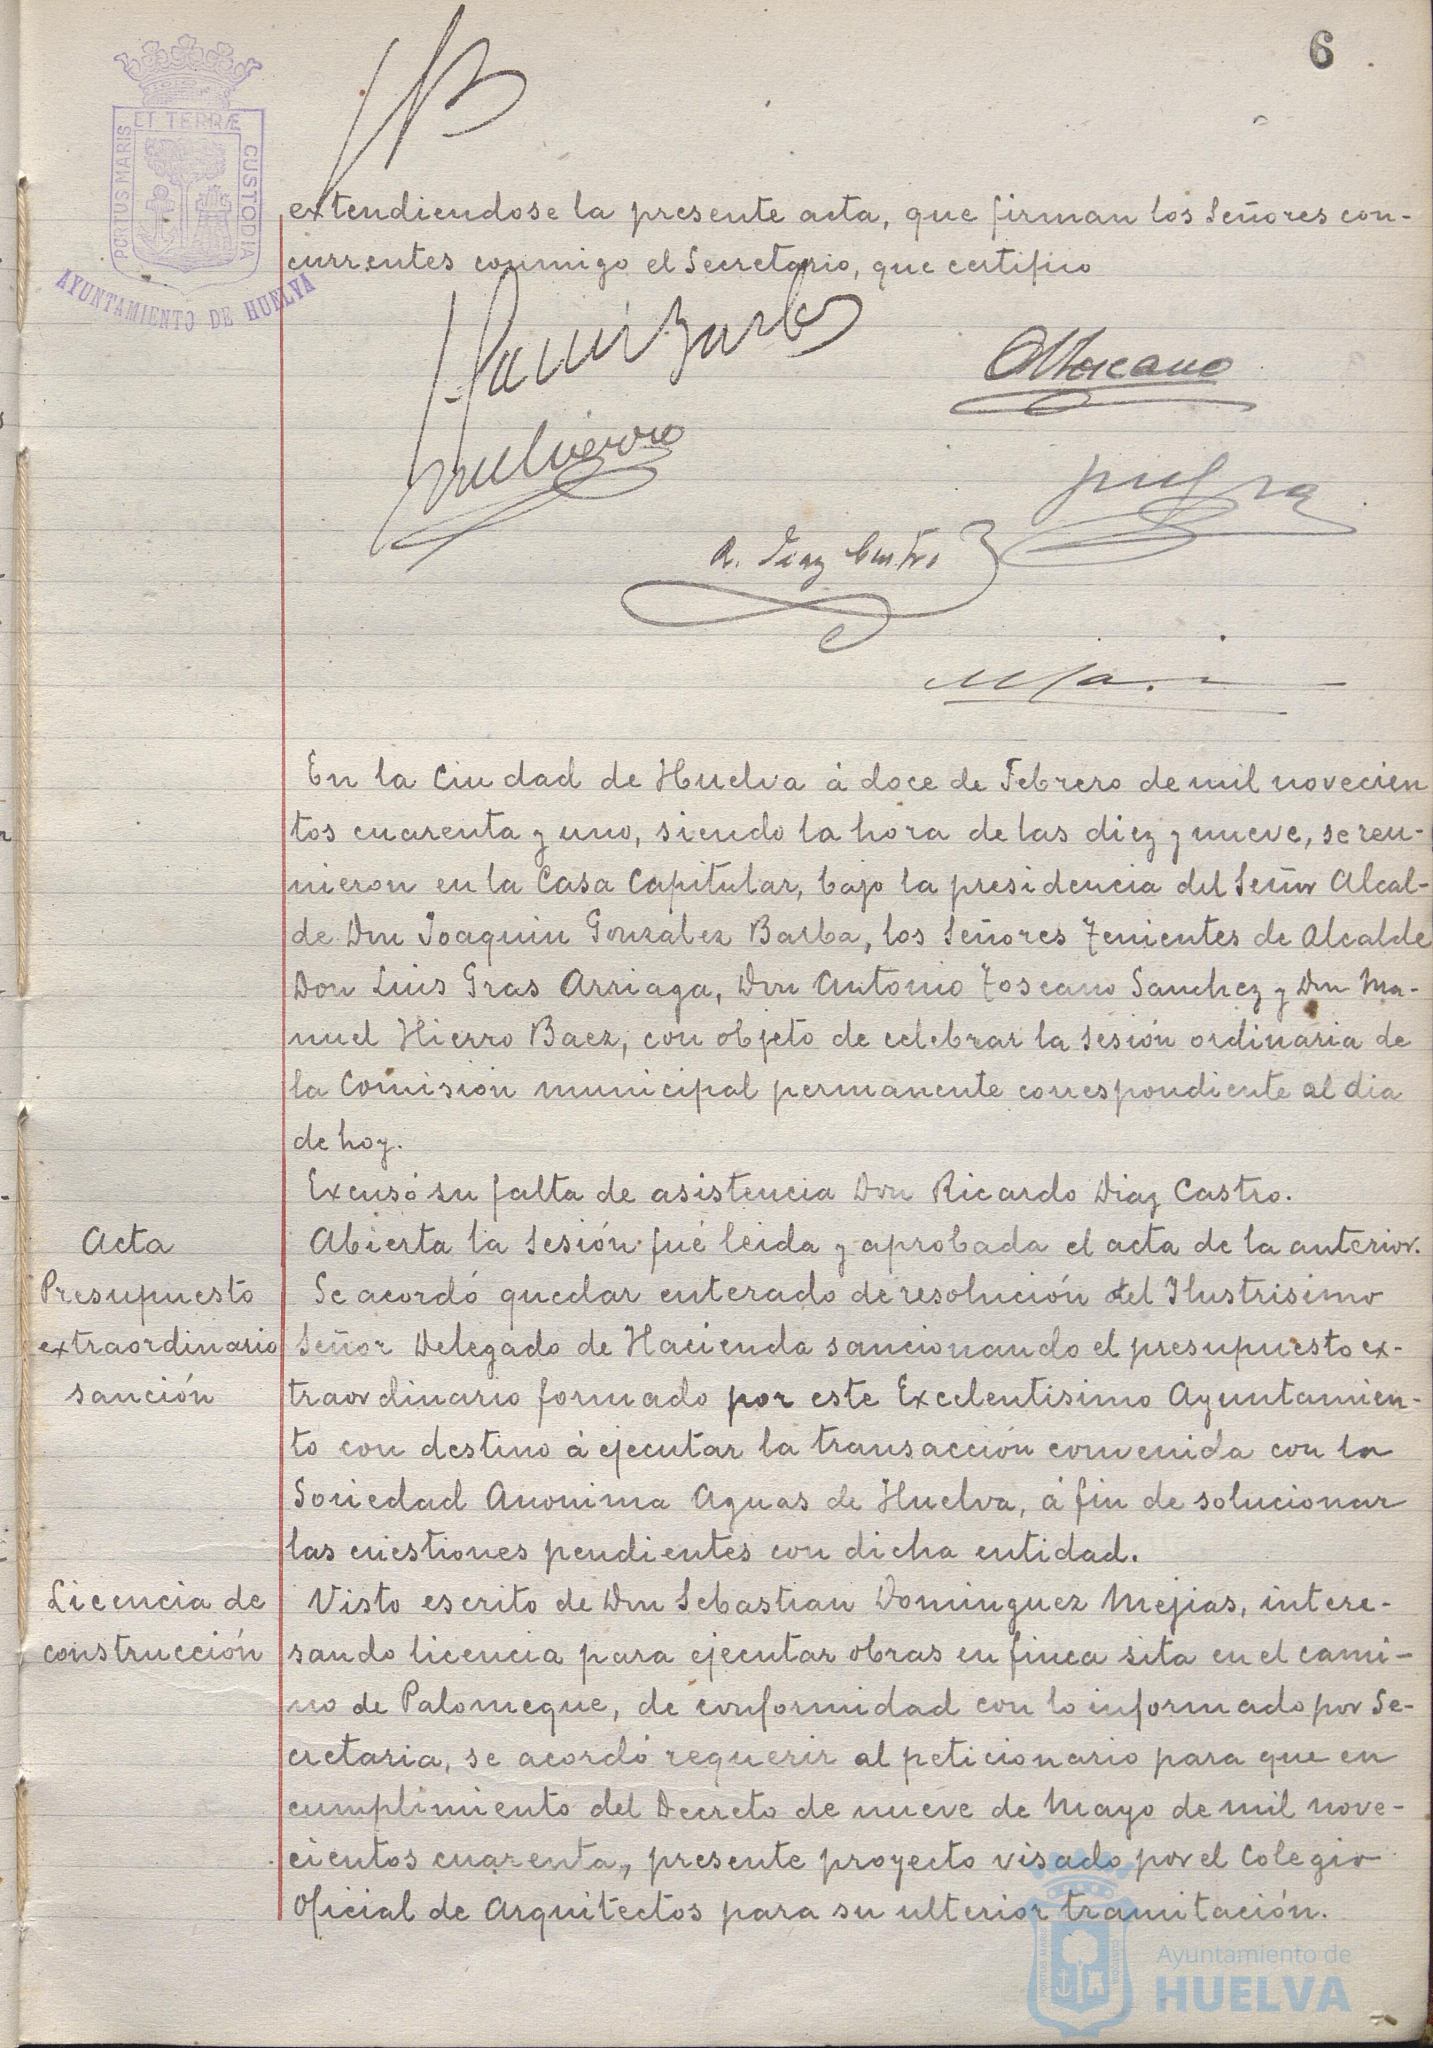 6
ET TERRÆ
PORTUS MARIS
CUSTODIA
AYUNTAMIENTO DE HUELVA
extendiendose la presente acta, que firman los Señores con-
currentes conmigo el Secretario, que certifico
A. Toscano
R. Diaz Castro
En la Ciudad de Huelva á doce de Febrero de mil novecien
tos cuarenta y uno, siendo la hora de las diez y nueve, se reu-
nieron en la Casa Capitular, bajo la presidencia del Señor Alcal-
de Don Joaquin Gonzalez Barba, los Señores Tenientes de Alcalde
Don Luis Gras Arriaga, Don Antonio Toscano Sanchez y Don Ma-
nuel Hierro Baez, con objeto de celebrar la sesión ordinaria de
la Comisión municipal permanente correspondiente al dia
de hoy.
Excusó su falta de asistencia Don Ricardo Diaz Castro.
Acta
Abierta la sesión fué leida y aprobada el acta de la anterior.
Presupuesto
extraordinario
sanción
Se acordó quedar enterado de resolución del Ilustrisimo
Señor Delegado de Hacienda sancionando el presupuesto ex-
traordinario formado por este Excelentisimo Ayuntamien-
to con destino á ejecutar la transacción convenida con la
Sociedad Anonima Aguas de Huelva, á fin de solucionar
las cuestiones pendientes con dicha entidad.
Licencia de
construcción
Visto escrito de Don Sebastian Dominguez Mejias, intere-
sando licencia para ejecutar obras en finca sita en el cami-
no de Palomeque, de conformidad con lo informado por Se-
cretaria, se acordó requerir al peticionario para que en
cumplimiento del Decreto de nueve de Mayo de mil nove-
cientos cuarenta, presente proyecto visado por el Colegio
Oficial de Arquitectos para su ulterior tramitación.
Ayuntamiento de
HUELVA